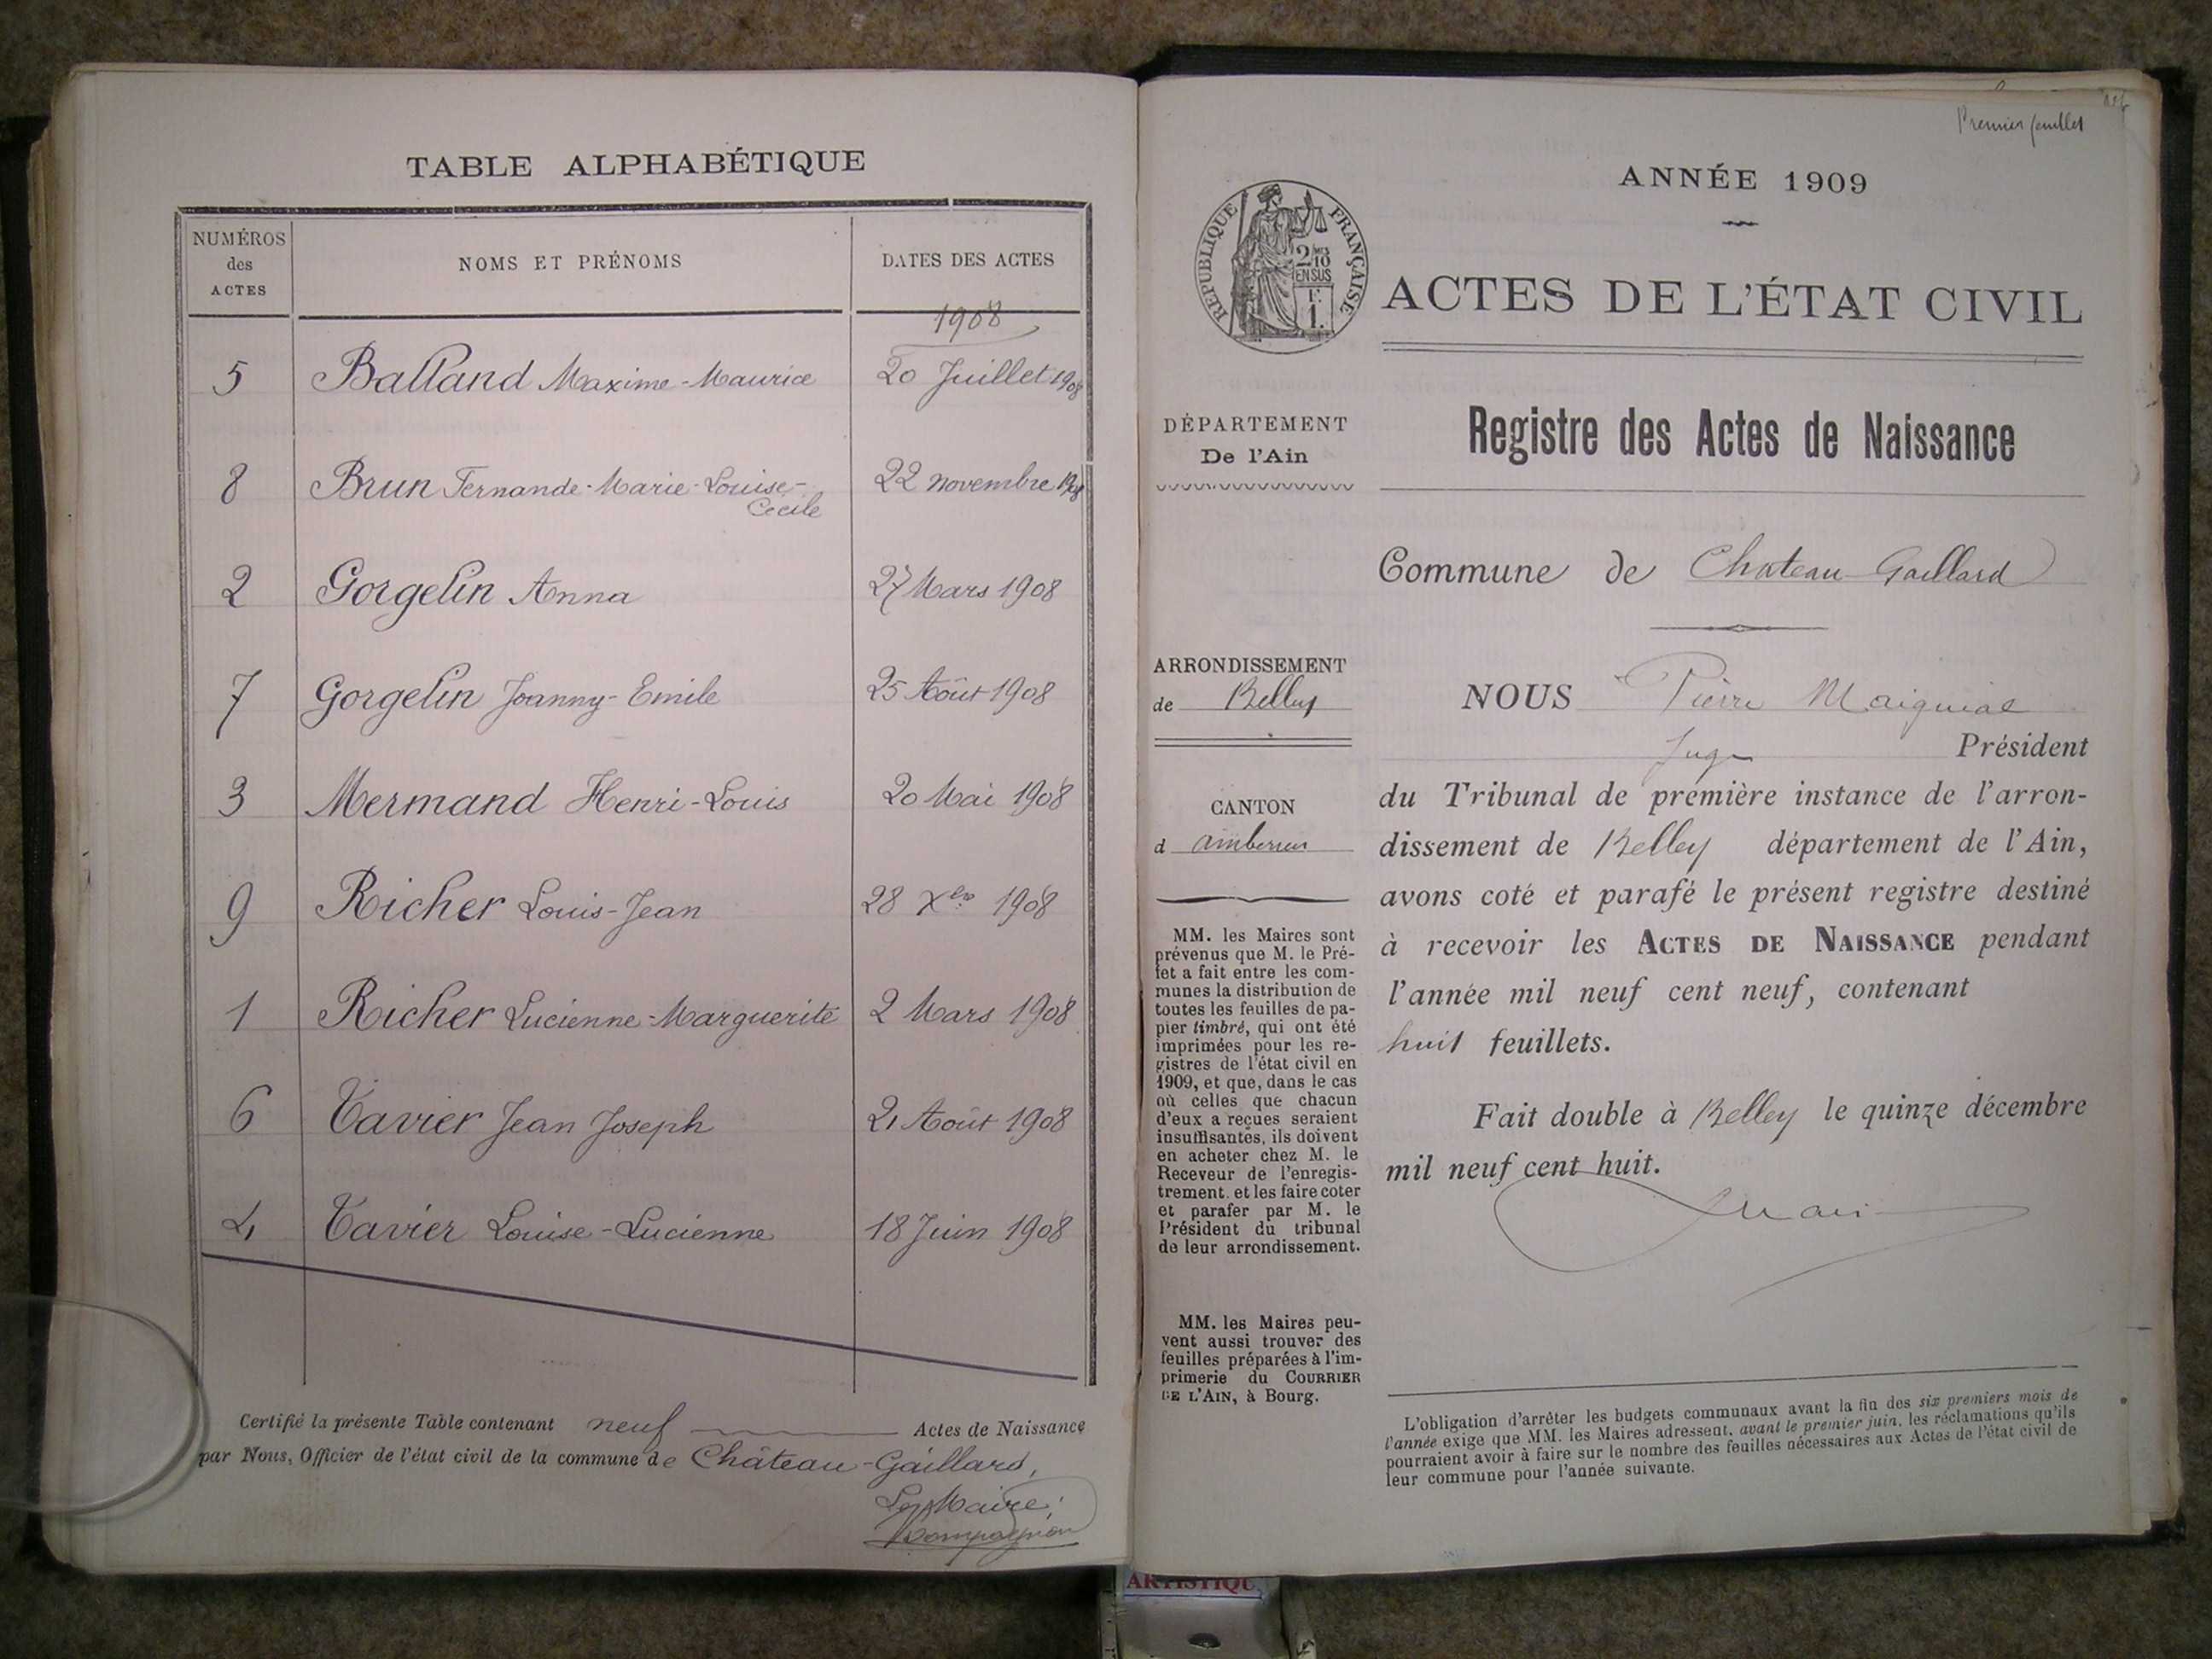 TABLE ALPHABÉTIQUE
NUMÉROS
des
ACTES
NOMS ET PRÉNOMS
DATES DES ACTES
1908
5 Balland Maxime-Maurice 20 Juillet 1908
8 Brun Fernande-Marie-Louise-
Cecile
22 novembre 1908
2 Gorgelin Anna 27 Mars 1908
7 Gorgelin Joanny-Emile 25 Août 1908
3 Mermand Henri-Louis 20 Mai 1908
9 Richer Louis-Jean 28 Xbre 1908
1 Richer Lucienne-Marguerite 2 Mars 1908
6 Tavier Jean Joseph Août 1908
4 Tavier Louise-Lucienne 18 Juin 1908
Certifié la présente Table contenant neuf Actes de Naissance
par Nous, Officier de l'état civil de la commune de Château-Gaillard,
Le Maire,
Compagnon
Premier feuillet
ANNÉE 1909
RÉPUBLIQUE FRANÇAISE
2/10
EN SUS
F.
1.
ACTES DE L'ÉTAT CIVIL
DÉPARTEMENT
De l'Ain
Registre des Actes de Naissance
Commune de Chateau-Gaillard
ARRONDISSEMENT
de Belley
CANTON
d amberieu
MM. les Maires sont
prévenus que M. le Pré-
fet a fait entre les com-
munes la distribution de
toutes les feuilles de pa-
pier timbré, qui ont été
imprimées pour les re-
gistres de l'état civil en
1909, et que, dans le cas
où celles que chacun
d'eux a reçues seraient
insuffisantes, ils doivent
en acheter chez M. le
Receveur de l'enregis-
trement, et les faire coter
et parafer par M. le
Président du tribunal
de leur arrondissement.
MM. les Maires peu-
vent aussi trouver des
feuilles préparées à l'im-
primerie du COURRIER
DE L'AIN, à Bourg.
NOUS Pierre
Juge Président
du Tribunal de première instance de l'arron-
dissement de Belley département de l'Ain,
avons coté et parafé le présent registre destiné
à recevoir les ACTES DE NAISSANCE pendant
l'année mil neuf cent neuf, contenant
huit feuillets.
Fait double à Belley le quinze décembre
mil neuf cent huit.
L'obligation d'arrêter les budgets communaux avant la fin des six premiers mois de
l'année exige que MM. les Maires adressent, avant le premier juin, les réclamations qu'ils
pourraient avoir à faire sur le nombre des feuilles nécessaires aux Actes de l'état civil de
leur commune pour l'année suivante.